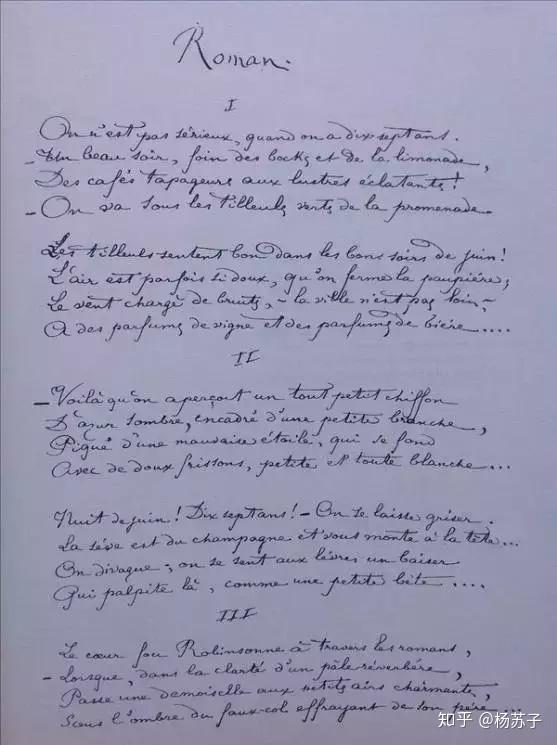 Roman.
I
On n'est pas sérieux, quand on a dix sept ans.
– Un beau soir, foin des bocks et de la limonade,
Des cafés tapageurs aux lustres éclatants !
– On va sous les tilleuls verts de la promenade.
Les tilleuls sentent bon dans les bons soirs de juin !
L'air est parfois si doux, qu'on ferme la paupière ;
Le vent chargé de bruits, – la ville n'est pas loin –
A des parfums de vigne et des parfums de bière ....
II
– Voilà qu'on aperçoit un tout petit chiffon
D'azur sombre, encadré d'une petite branche,
Piqué d'une mauvaise étoile, qui se fond
Avec de doux frissons, petite et toute blanche ...
Nuit de juin ! Dix sept ans ! – On se laisse griser.
La sève est du champagne et vous monte à la tête ...
On divague ; on se sent aux lèvres un baiser
Qui palpite là, comme une petite bête ....
III
Le cœur fou Robinsonne à travers les romans,
– Lorsque, dans la clarté d'un pâle réverbère,
Passe une demoiselle aux petits airs charmants,
Sous l'ombre du faux-col effrayant de son père ...
知乎 @杨苏子